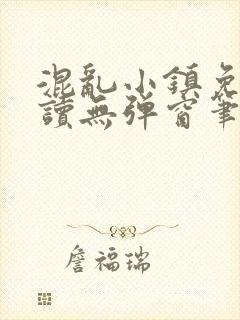 混亂小鎮免
讀無彈窗筆
詹福瑞